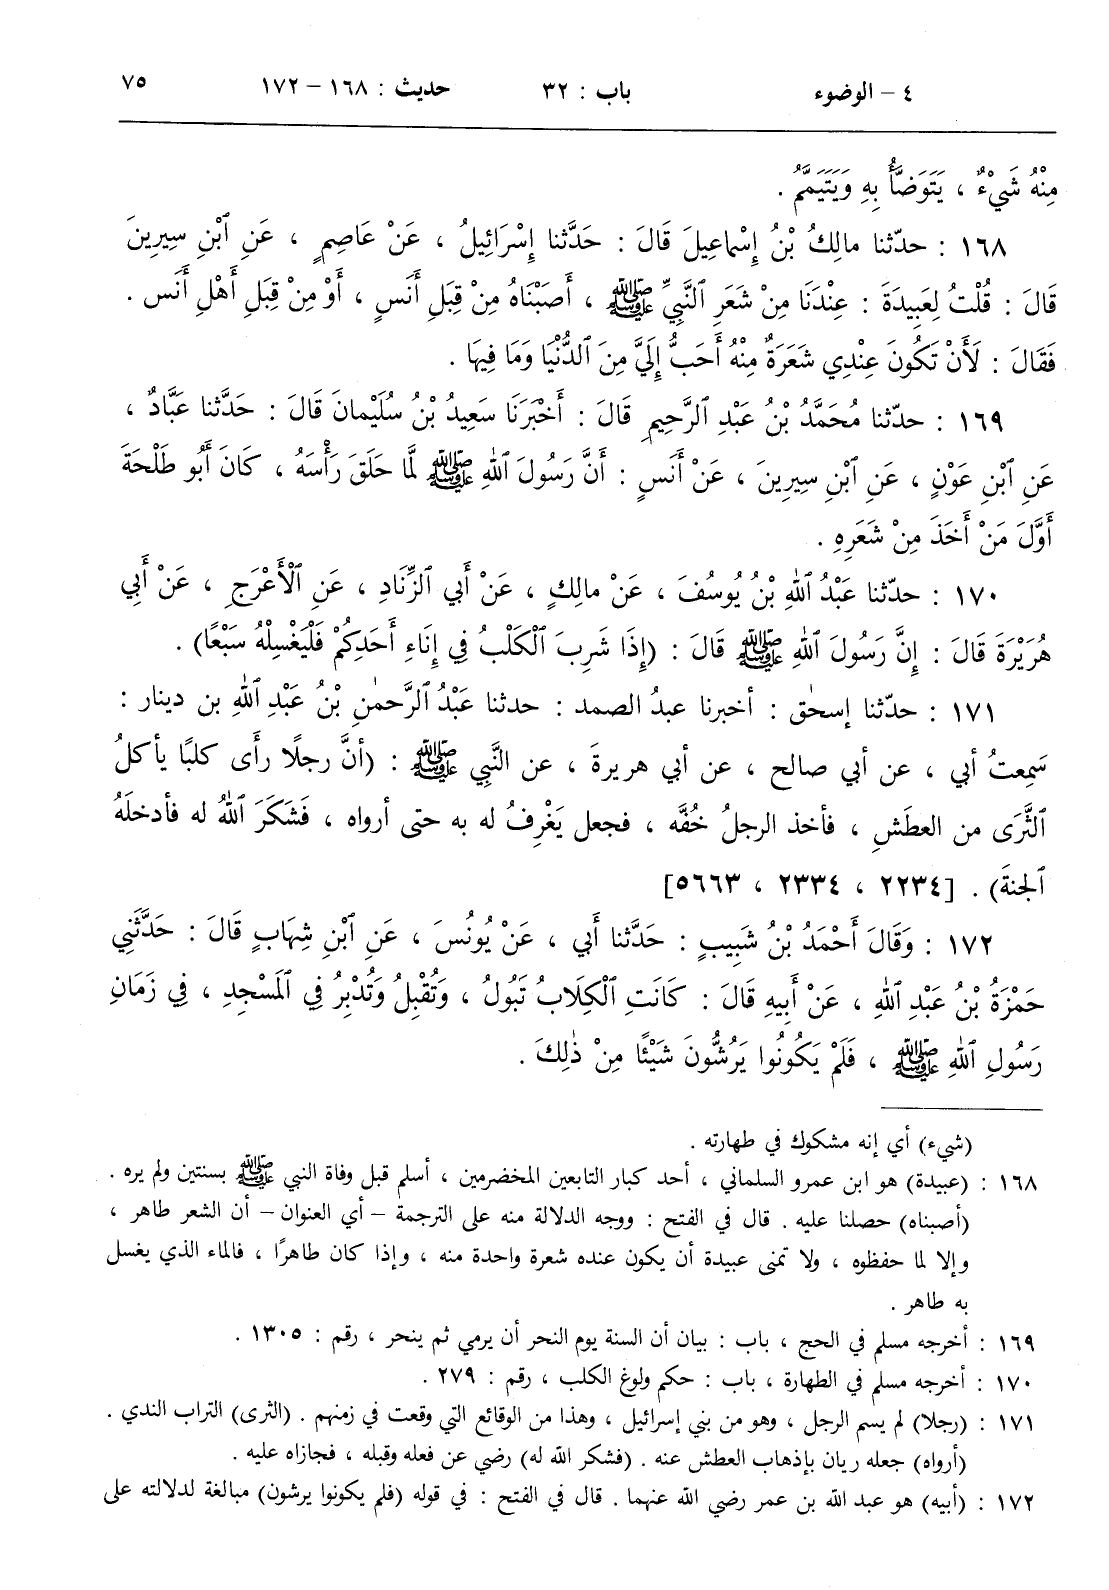 ٤ – الوضوء باب : ٣٢ حديث : ١٦٨ – ١٧٢ ٧٥
مِنْهُ شَيْءٌ ، يَتَوَضَّأُ بِهِ وَيَتَيَمَّمُ .
١٦٨ : حدّثنا مالِكُ بْنُ إِسْمَاعِيلَ قَالَ : حَدَّثنا إِسْرَائِيلُ ، عَنْ عَاصِمٍ ، عَنِ ٱبْنِ سِيرِينَ
قَالَ : قُلْتُ لِعَبِيدَةَ : عِنْدَنَا مِنْ شَعَرِ ٱلنَّبِيِّ ﷺ ، أَصَبْنَاهُ مِنْ قِبَلِ أَنَسٍ ، أَوْ مِنْ قِبَلِ أَهْلِ أَنَس .
فَقَالَ : لَأَنْ تَكُونَ عِنْدِي شَعَرَةٌ مِنْهُ أَحَبُّ إِلَيَّ مِنَ ٱلدُّنْيَا وَمَا فِيهَا .
١٦٩ : حدّثنا مُحَمَّدُ بْنُ عَبْدِ ٱلرَّحِيمِ قَالَ : أَخْبَرَنَا سَعِيدُ بْنُ سُلَيْمانَ قَالَ : حَدَّثنا عَبَّادٌ ،
عَنِ ٱبْنِ عَوْنٍ ، عَنِ ٱبْنِ سِيرِينَ ، عَنْ أَنَسٍ : أَنَّ رَسُولَ ٱللهِ ﷺ لَمَّا حَلَقَ رَأْسَهُ ، كَانَ أَبُو طَلْحَةَ
أَوَّلَ مَنْ أَخَذَ مِنْ شَعَرِهِ .
١٧٠ : حدّثنا عَبْدُ ٱللهِ بْنُ يُوسُفَ ، عَنْ مالِكٍ ، عَنْ أَبي ٱلزِّنَادِ ، عَنِ ٱلْأَعْرَجِ ، عَنْ أَبِي
هُرَيْرَةَ قَالَ : إِنَّ رَسُولَ ٱللهِ ﷺ قَالَ : (إِذَا شَرِبَ ٱلْكَلْبُ فِي إِنَاءِ أَحَدِكُمْ فَلْيَغْسِلْهُ سَبْعًا) .
١٧١ : حدّثنا إسحٰق : أخبرنا عبدُ الصمد : حدثنا عَبْدُ ٱلرَّحمٰنِ بْنُ عَبْدِ ٱللهِ بن دينار :
سَمِعتُ أبي ، عن أبي صالح ، عن أبي هريرةَ ، عن النَّبِي ﷺ : (أنَّ رجلًا رأَى كلبًا يأكلُ
ٱلثَّرَى من العطَشِ ، فأخذ الرجلُ خُفَّه ، فجعل يَغْرِفُ له به حتى أرواه ، فَشَكَرَ ٱللهُ له فأدخلَهُ
ٱلجنةَ) . [٢٢٣٤ ، ٢٣٣٤ ، ٥٦٦٣]
١٧٢ : وَقَالَ أَحْمَدُ بْنُ شَبِيبٍ : حَدَّثنا أَبي ، عَنْ يُونُسَ ، عَنِ ٱبْنِ شِهَابٍ قَالَ : حَدَّثَنِي
حَمْزَةُ بْنُ عَبْدِ ٱللهِ ، عَنْ أَبِيهِ قَالَ : كَانَتِ ٱلْكِلَابُ تَبُولُ ، وَتُقْبِلُ وَتُدْبِرُ فِي ٱلَمسْجِدِ ، فِي زَمَانِ
رَسُولِ ٱللهِ ﷺ ، فَلَمْ يَكُونُوا يَرُشُّونَ شَيْئًا مِنْ ذٰلِكَ .
(شيء) أي إنه مشكوك في طهارته .
١٦٨ : (عبيدة) هو ابن عمرو السلماني ، أحد كبار التابعين المخضرمين ، أسلم قبل وفاة النبي ﷺ بسنتين ولم يره .
(أصبناه) حصلنا عليه . قال في الفتح : ووجه الدلالة منه على الترجمة – أي العنوان – أن الشعر طاهر ،
وإلا لما حفظوه ، ولا تمنى عبيدة أن يكون عنده شعرة واحدة منه ، وإذا كان طاهرًا ، فالماء الذي يغسل
به طاهر .
١٦٩ : أخرجه مسلم في الحج ، باب : بيان أن السنة يوم النحر أن يرمي ثم ينحر ، رقم : ١٣٠٥ .
١٧٠ : أخرجه مسلم في الطهارة ، باب : حكم ولوغ الكلب ، رقم : ٢٧٩ .
١٧١ : (رجلا) لم يسم الرجل ، وهو من بني إسرائيل ، وهذا من الوقائع التي وقعت في زمنهم . (الثرى) التراب الندي .
(أرواه) جعله ريان بإذهاب العطش عنه . (فشكر الله له) رضي عن فعله وقبله ، فجازاه عليه .
١٧٢ : (أبيه) هو عبد الله بن عمر رضي الله عنهما . قال في الفتح : في قوله (فلم يكونوا يرشون) مبالغة لدلالته على